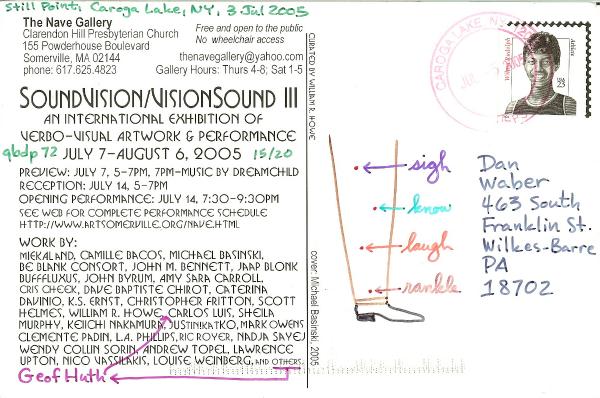 Still Point, Caroga Lake, NY, 3 Jul 2005
The Nave Gallery
Clarendon Hill Presbyterian Church
155 Powderhouse Boulevard
Somerville, MA 02144
phone: 617.625.4823
Free and open to the public
No wheelchair access
thenavegallery@yahoo.com
Gallery Hours: Thurs 4-8; Sat 1-5
SOUNDVISION/VISIONSOUND III
AN INTERNATIONAL EXHIBITION OF
VERBO-VISUAL ARTWORK & PERFORMANCE
qbdp 72 JULY 7-AUGUST 6, 2005 15/20
PREVIEW: JULY 7, 5-7PM, 7PM-MUSIC BY DREAMCHILD
RECEPTION: JULY 14, 5-7PM
OPENING PERFORMANCE: JULY 14, 7:30-9:30PM
SEE WEB FOR COMPLETE PERFORMANCE SCHEDULE
HTTP://WWW.ARTSOMERVILLE.ORG/NAVE.HTML
WORK BY:
MIEKAL AND, CAMILLE BACOS, MICHAEL BASINSKI,
BE BLANK CONSORT, JOHN M. BENNETT, JAAP BLONK
BUFFFLUXUS, JOHN BYRUM, AMY SARA CARROLL,
CRIS CHEEK, DAVE BAPTISTE CHIROT, CATERINA
DAVINIO, K.S. ERNST, CHRISTOPHER FRITTON, SCOTT
HELMES, WILLIAM R. HOWE, CARLOS LUIS, SHEILA
MURPHY, KEIICHI NAKAMURA, JUSTIN KATKO, MARK OWENS
CLEMENTE PADIN, L.A. PHILLIPS, RIC ROYER, NADJA SAYEJ
WENDY COLLIN SORIN, ANDREW TOPEL, LAWRENCE
UPTON, NICO VASSILAKIS, LOUISE WEINBERG, AND OTHERS.
Geof Huth
CURATED BY WILLIAM R. HOWE
cover: Michael Basinski, 2005
sigh
know
laugh
rankle
CAROGA LAKE, NY
JUL
USA
23
Dan
Waber
463 South
Franklin St.
Wilkes-Barre
PA
18702